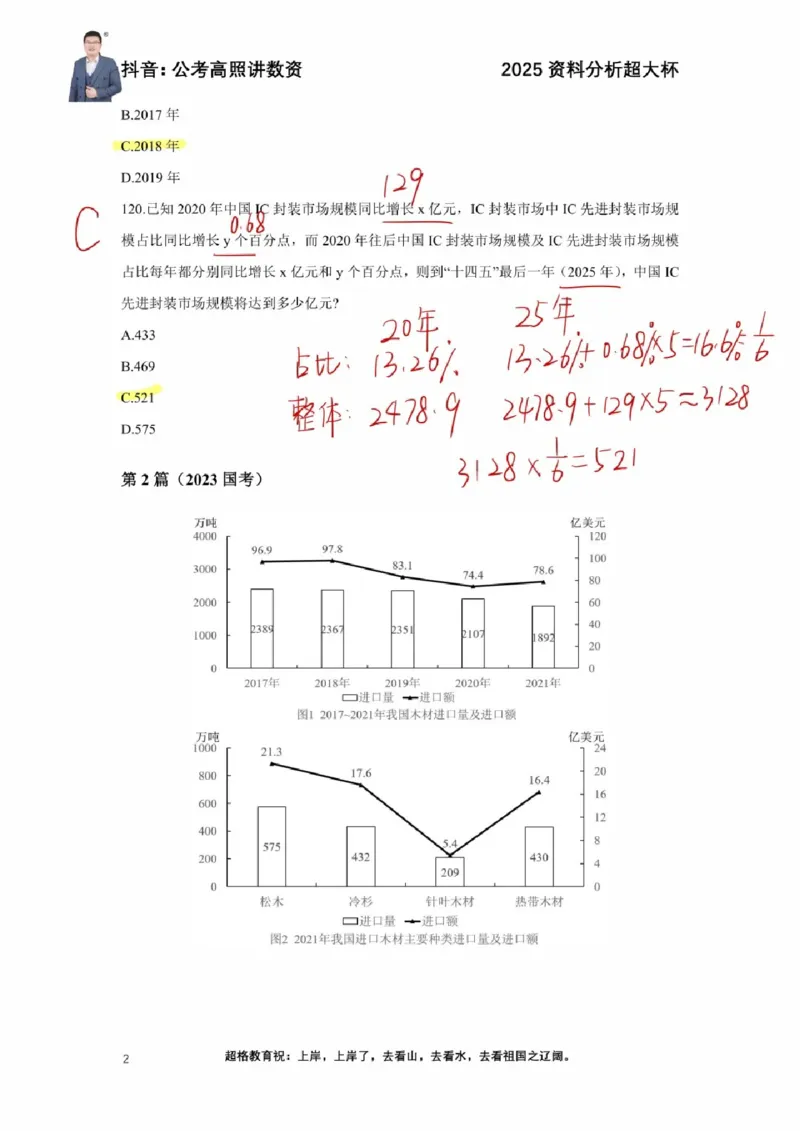 抖音：公考高照讲数资 2025 资料分析超大杯
B.2017 年
C.2018 年
D.2019 年
129
120.已知 2020 年中国 IC 封装市场规模同比增长 x 亿元，IC 封装市场中 IC 先进封装市场规
C 0.68
模占比同比增长 y 个百分点，而 2020 年往后中国 IC 封装市场规模及 IC 先进封装市场规模
占比每年都分别同比增长 x 亿元和 y 个百分点，则到“十四五”最后一年（2025 年），中国 IC
先进封装市场规模将达到多少亿元?
20年. 25年.
A.433
占比: 13.26% 13.26%+0.68%×5=16.6% 1/6
B.469
C.521
整体: 2478.9 2478.9+129×5≈3128
D.575
3128×1/6=521
第 2 篇（2023 国考）
万吨 亿美元
4000 120
96.9 97.8 83.1 74.4 78.6
100
3000
80
2000 60
2389 2367 2351 2107 1892
40
1000
20
0 0
2017年 2018年 2019年 2020年 2021年
进口量 进口额
图1 2017~2021年我国木材进口量及进口额
万吨 亿美元
1000 24
21.3 17.6 5.4 16.4
800 20
16
600
12
400
8
575 432 209 430
200 4
0 0
松木 冷杉 针叶木材 热带木材
进口量 进口额
图2 2021年我国进口木材主要种类进口量及进口额
2 超格教育祝：上岸，上岸了，去看山，去看水，去看祖国之辽阔。